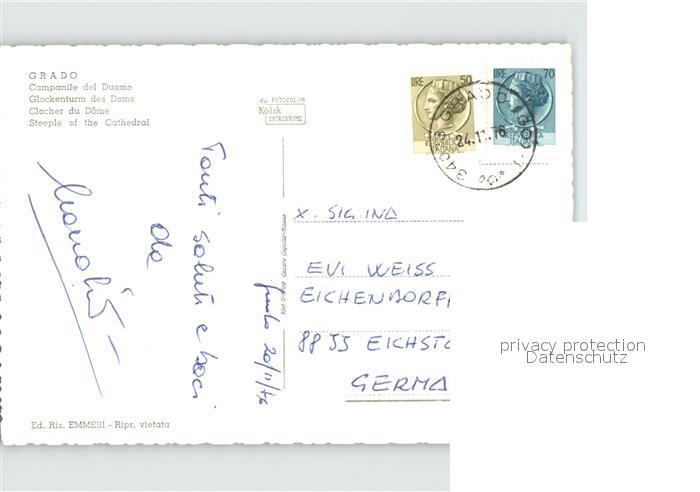 GRADO
Campanile del Duomo
Glockenturm des Doms
Clocher du Dôme
Steeple of the Cathedral
da FOTOCOLOR
Kodak
EKTACHROME
LIRE 50
LIRE 70
34073 GRADO (GO)
24.11.76
Tanti saluti e baci
da
grado 20/11/76
X. SIG.INA
EVI WEISS
EICHENDORFF
8833 EICHSTA
GERMA
privacy protection
Datenschutz
Ed. Ris. EMMEBI - Ripr. vietata